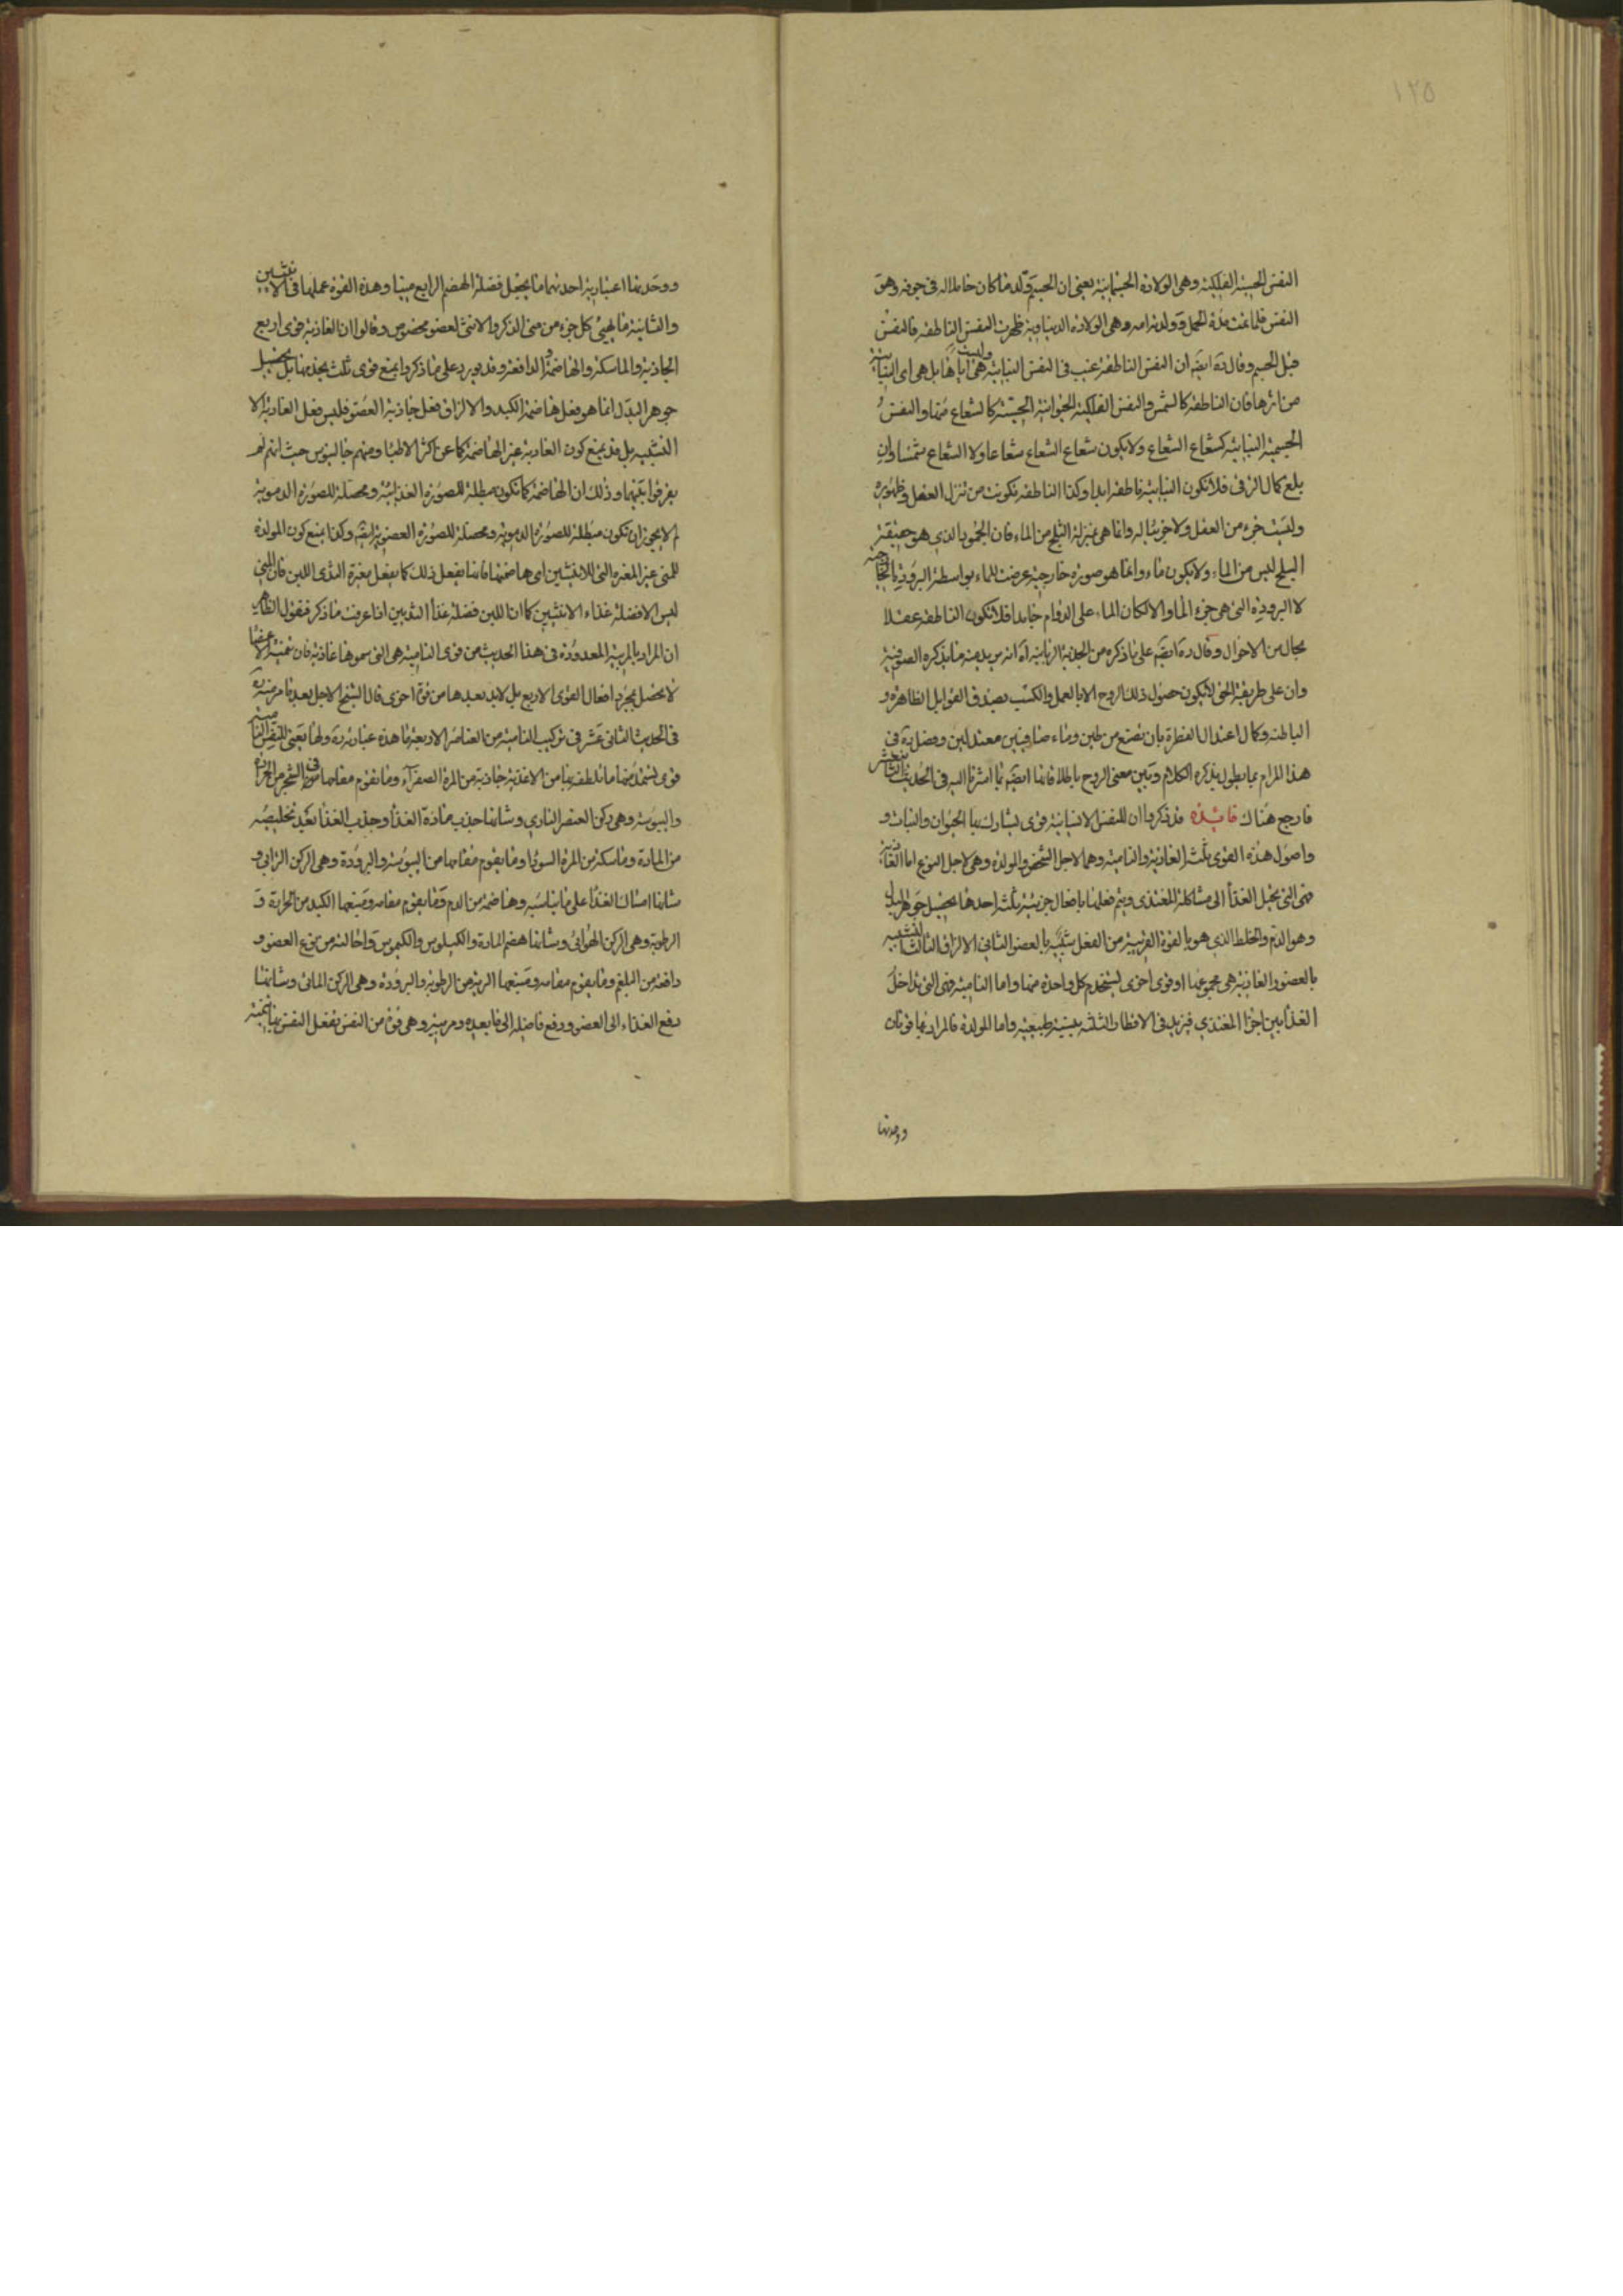 ١٢٥
النفس الحسية الفلكية وهى الولادة الجسمانية يعنى ان الجسم ولد ما كان حاملا له فى جوفه وهو
النفس فلما تمت مدة الحمل وولدته امه وهى الولادة الدنياوية ظهرت النفس الناطقة فالنفس
قبل الجسم وقال ره ايضا ان النفس الناطقة غيب فى النفس النباتية وليست هى اياها بل هى اى النباتية
من اثرها فان الناطقة كالشمس والنفس الفلكية الحيوانية الحسية كالشعاع منها والنفس
الجسمية النباتية كشعاع الشعاع ولا يكون شعاع الشعاع شعاعا ولا الشعاع شمسا وان
بلغ كمال الرقى فلا تكون النباتية ناطقة ابدا وكذا الناطقة تكونت من تنزل العقل وظهوره
وليست جزء من العقل ولا جزئيا له وانما هى بمنزلة الثلج من الماء فان الجمود الذى هو حقيقة
الثلج ليس من الماء ولا يكون ماء وانما هو صورة خارجية عرضت للماء بواسطة البرودة الخارجية
لا البرودة التى هى جزء الماء والا لكان الماء على الدوام جامدا فلا تكون الناطقة عقلا
بحال من الاحوال وقال ره ايضا على ما ذكره من الجذبة الربانية اه انه يريد منه ما يذكره الصوفية
وان على طريقة الحق لا يكون حصول ذلك الروح الا بالعمل والكسب بصدق القوابل الظاهرة و
الباطنة وكمال اعتدال الفطرة بان تصنع من طين وماء صافيين معتدلين وفصل ره فى
هذا المرام بما يطول بذكره الكلام وتبين معنى الروح باطلاقاتها ايضا بما اشرنا اليه فى الحديث التاسع عشر
فارجع هناك فائدة قد ذكروا ان للنفس الانسانية قوى تشارك بها الحيوان والنبات و
واصول هذه القوى ثلث الغاذية والنامية وهما لاجل الشخص والمولدة وهى لاجل النوع اما الغاذية
فهى التى تحيل الغذا الى مشاكلة المغتذى ويتم فعلها بافعال جزئية ثلثة احدها تحصيل جوهر البدل
وهو الدم والخلط الذى هو بالقوة القريبة من الفعل شبيه بالعضو الثانى الالزاق الثالث التشبيه
بالعضو والغاذية هى مجموعها او قوى اخرى تستخدم كل واحدة منها واما النامية فهى التى تداخل
الغذا بين اجزا المغتذى فتزيد فى الاقطار الثلثة بنسبة طبيعية واما المولدة فالمراد بها قوتان
ووحدتها
ووحدتها اعتبارية احدهما ما يجعل فضلة الهضم الرابع منيا وهذه القوة عملها فى الانثيين
والثانية ما يهيئ كل جزء من منى الذكر والانثى لعضو مخصوص وقالوا ان الغاذية قوى اربع
الجاذبة والماسكة والهاضمة والدافعة وقد يورد على ما ذكروا بمنع قوى ثلث بجذمها بل تحصيل
جوهر البدل انما هو فعل هاضمة الكبد والالزاق فعل جاذبة العضو فليس فعل الغاذية الا
التشبيه بل قد يمنع كون الغاذية غير الهاضمة كما عن اكثر الاطبا ومنهم جالينوس حيث انهم لم
يفرقوا بينهما وذلك ان الهاضمة كما تكون مبطلة للصورة الغذائية ومحصلة للصورة الدموية
لم لا يجوز ان تكون مبطلة للصورة الدموية ومحصلة للصورة العضوية ايضا وكذا يمنع كون المولدة
للمنى غير المغيرة التى للانثيين اى هاضمتها فانها تفعل ذلك كما يفعل مغيرة الثدى اللبن فان المنى
ليس الا فضلة غذاء الانثيين كما ان اللبن فضلة غذا الثديين اذا عرفت ما ذكر فنقول الظاهر
ان المراد بالمربية المعدودة فى هذا الحديث من قوى النامية هى التى سموها غاذية فان تنمية الاعضا
لا تحصل بمجرد افعال القوى الاربع بل لا بد بعدها من قوة اخرى قال الشيخ الاجل بعد ما مر منه ره
فى الحديث الثانى عشر فى تركيب النامية من العناصر الاربعة ما هذه عبارته ره ولها يعنى للنفس النامية
قوى تستمد منها ما تلطف بها من الاغذية جاذبة من المرة الصفرآء وما يقوم مقامها فى الشجر من الحرارة
واليبوسة وهى ركن العنصر النارى وشانها جذب مادة الغذا وجذب الغذا بعد تخليصه
من المادة وماسكة من المرة السودا وما يقوم مقامها من اليبوسة والبرودة وهى الركن الترابى و
شانها امساك الغذا على ما يناسبه وهاضمة من الدم وما يقوم مقامه ومنبعها الكبد من الحرارة و
الرطوبة وهى الركن الهوائى وشانها هضم المادة والكيلوس والكيموس واحالته من نوع العضو و
دافعة من البلغم وما يقوم مقامه ومنبعها الرية من الرطوبة والبرودة وهى الركن المائى وشانها
دفع الغذاء الى العضو ودفع فاضله الى ما بعده ومربية وهى قوة من النفس تفعل النفس بها تنمية